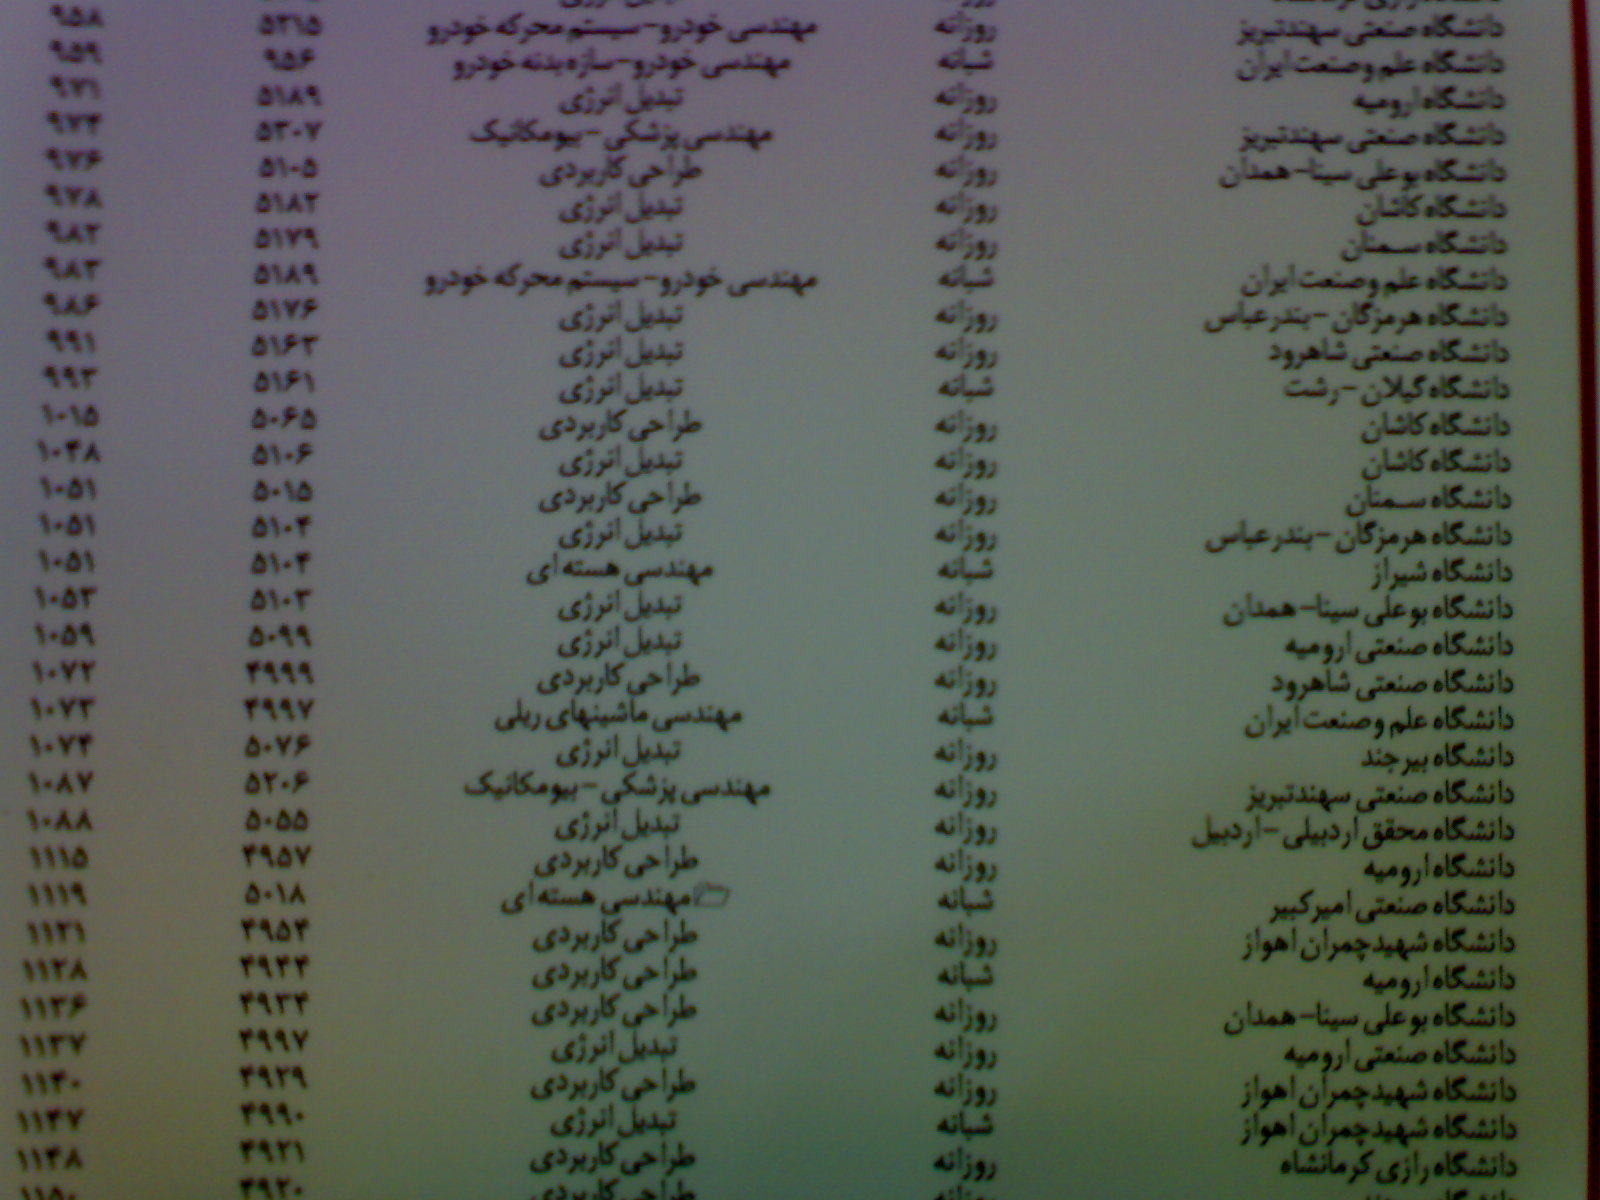 دانشگاه صنعتی سهندتبریز روزانه مهندسی خودرو-سیستم محرکه خودرو ۵۲۱۵ ۹۵۸
دانشگاه علم وصنعت ایران شبانه مهندسی خودرو-سازه بدنه خودرو ۹۵۶ ۹۵۹
دانشگاه ارومیه روزانه تبدیل انرژی ۵۱۸۹ ۹۷۱
دانشگاه صنعتی سهندتبریز روزانه مهندسی پزشکی -بیومکانیک ۵۳۰۷ ۹۷۴
دانشگاه بوعلی سینا-همدان روزانه طراحی کاربردی ۵۱۰۵ ۹۷۶
دانشگاه کاشان روزانه تبدیل انرژی ۵۱۸۲ ۹۷۸
دانشگاه سمنان روزانه تبدیل انرژی ۵۱۷۹ ۹۸۲
دانشگاه علم وصنعت ایران شبانه مهندسی خودرو-سیستم محرکه خودرو ۵۱۸۹ ۹۸۳
دانشگاه هرمزگان -بندرعباس روزانه تبدیل انرژی ۵۱۷۶ ۹۸۶
دانشگاه صنعتی شاهرود روزانه تبدیل انرژی ۵۱۶۳ ۹۹۱
دانشگاه گیلان -رشت شبانه تبدیل انرژی ۵۱۶۱ ۹۹۳
دانشگاه کاشان روزانه طراحی کاربردی ۵۰۶۵ ۱۰۱۵
دانشگاه کاشان روزانه تبدیل انرژی ۵۱۰۶ ۱۰۴۸
دانشگاه سمنان روزانه طراحی کاربردی ۵۰۱۵ ۱۰۵۱
دانشگاه هرمزگان -بندرعباس روزانه تبدیل انرژی ۵۱۰۴ ۱۰۵۱
دانشگاه شیراز شبانه مهندسی هسته ای ۵۱۰۴ ۱۰۵۱
دانشگاه بوعلی سینا-همدان روزانه تبدیل انرژی ۵۱۰۳ ۱۰۵۳
دانشگاه صنعتی ارومیه روزانه تبدیل انرژی ۵۰۹۹ ۱۰۵۹
دانشگاه صنعتی شاهرود روزانه طراحی کاربردی ۴۹۹۹ ۱۰۷۲
دانشگاه علم وصنعت ایران شبانه مهندسی ماشینهای ریلی ۴۹۹۷ ۱۰۷۳
دانشگاه بیرجند روزانه تبدیل انرژی ۵۰۷۶ ۱۰۷۴
دانشگاه صنعتی سهندتبریز روزانه مهندسی پزشکی -بیومکانیک ۵۲۰۶ ۱۰۸۷
دانشگاه محقق اردبیلی -اردبیل روزانه تبدیل انرژی ۵۰۵۵ ۱۰۸۸
دانشگاه ارومیه روزانه طراحی کاربردی ۴۹۵۷ ۱۱۱۵
دانشگاه صنعتی امیرکبیر شبانه مهندسی هسته ای ۵۰۱۸ ۱۱۱۹
دانشگاه شهیدچمران اهواز روزانه طراحی کاربردی ۴۹۵۴ ۱۱۲۱
دانشگاه ارومیه شبانه طراحی کاربردی ۴۹۴۴ ۱۱۲۸
دانشگاه بوعلی سینا-همدان روزانه طراحی کاربردی ۴۹۳۴ ۱۱۳۶
دانشگاه صنعتی ارومیه روزانه تبدیل انرژی ۴۹۹۷ ۱۱۳۷
دانشگاه شهیدچمران اهواز روزانه طراحی کاربردی ۴۹۲۹ ۱۱۴۰
دانشگاه شهیدچمران اهواز شبانه تبدیل انرژی ۴۹۹۰ ۱۱۴۷
دانشگاه رازی کرمانشاه روزانه طراحی کاربردی ۴۹۲۱ ۱۱۴۸